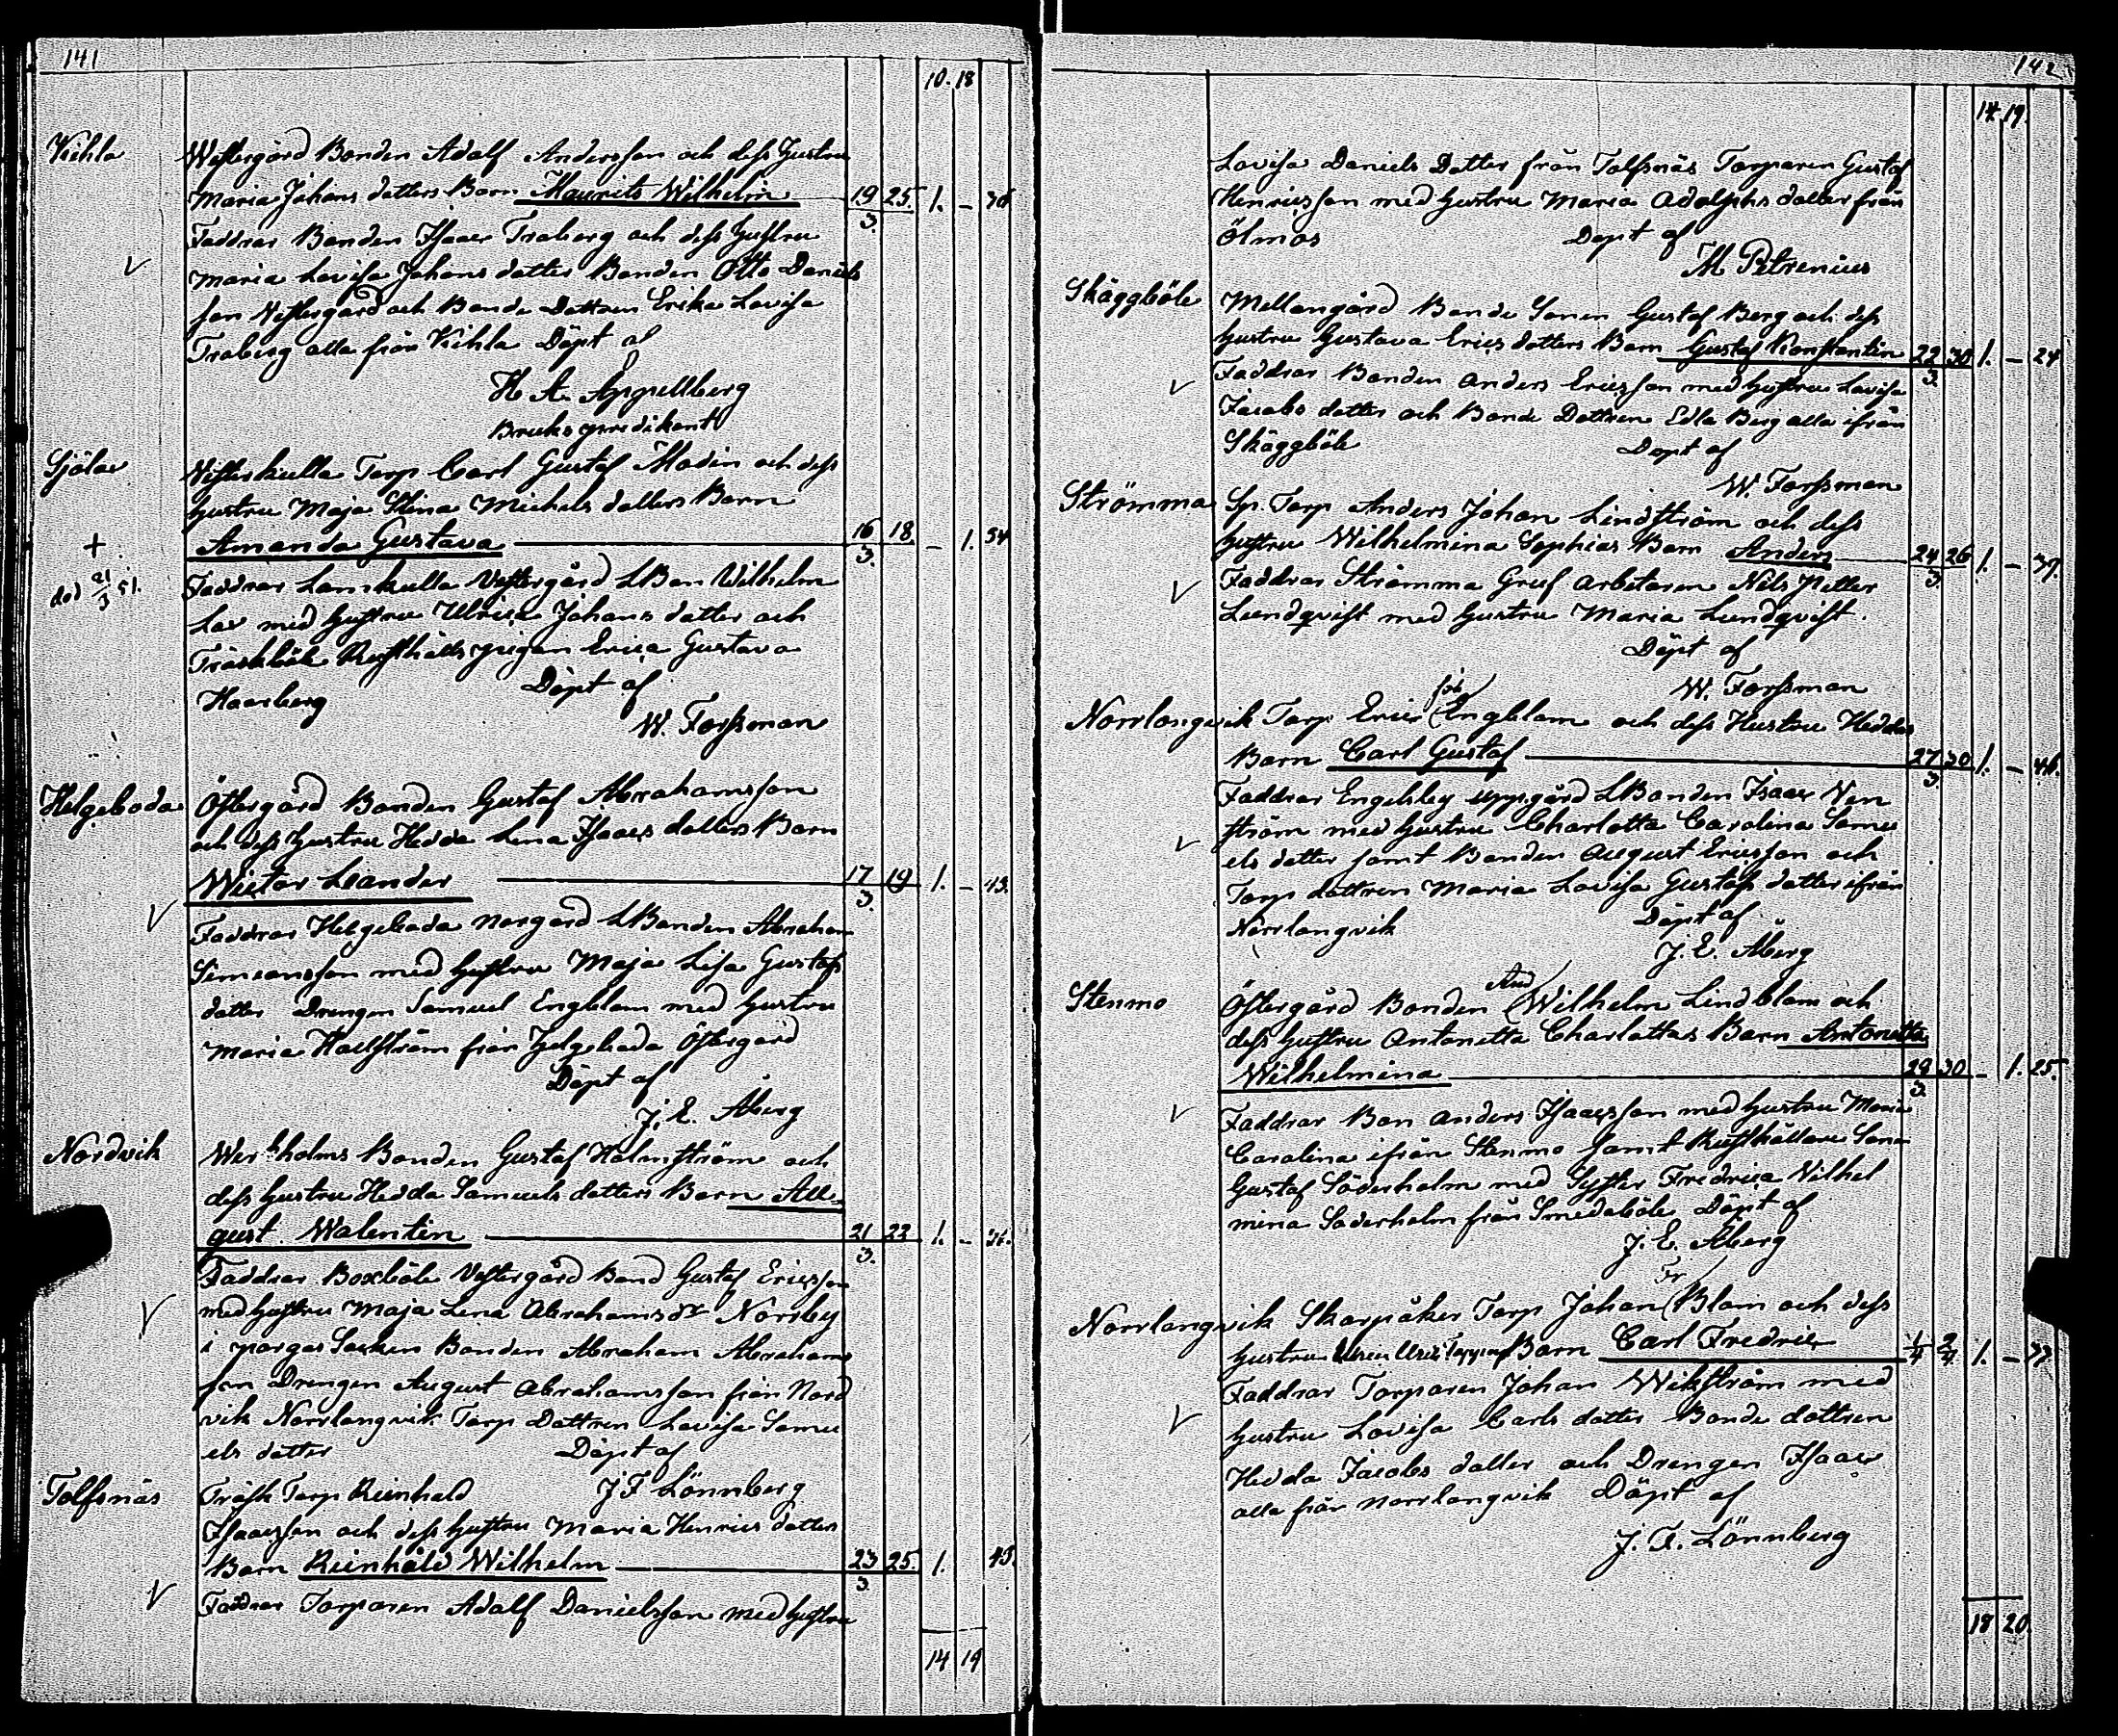 141
10. 18
Kihla Westergård Bonden Adolf Andersson och dess Hustru
Maria Johans dotters Barn Maurits Wilhelm 19/3 25. 1. –
Faddrar Bonden Isaac Traberg och dess Hustru
Maria Lovisa Johans dotter Bonden Otto Daniels
son Westergård och Bonde Dottren Erika Lovisa
Traberg alla från Kihla Döpt af
H A. Appellberg
Bruks predikant
Sjölax Westerkulla Torp Carl Gustaf Modin och dess
hustru Maja Stina Michels dotters Barn
+ Amanda Gustava 16/3 18. – 1. 34
död 21/3 51. Faddrar Lamkulla Vestergård LBon Wilhelm
Lax med hustru Ulrica Johans dotter och
Träskböle Rusthålls pigan Erica Gustava
Haarberg Döpt af
W. Forssman
Helgeboda Östergård Bonden Gustaf Abrahamsson
och dess hustru Hedda Lena Isaacs dotters Barn
Wictor Leander 17/3 19 1. – 43.
Faddrar Helgeboda Norgård LBonden Abraham
Simeonsson med hustru Maja Lisa Gustafs
dotter Drengen Samuel Engblom med hustru
Maria Hallström från Helgeboda Östergård
Döpt af
J. E. Åberg
Nordvik Werkholms Bonden Gustaf Holmström och
dess hustru Hedda Samuels dotters Barn Au
gust Walentin 21/3 22 1. – 36.
Faddrar Boxböle Vestergård Bond Gustaf Ericsson
med hustru Maja Lena Abrahamsdr Norrby
i pargas Socken Bonden Abraham Abrahams
son Drengen August Abrahamsson från Nord
vik Norrlangvik Torp Dottren Lovisa Samu
els dotter Döpt af
J F Lönnberg
Tolfsnäs Träsk Torp Reinhold
Isaacsson och dess hustru Maria Henrics dotters
Barn Reinhold Wilhelm 23/3 25. 1. 43.
Faddrar Torparen Adolf Danielsson med hustru
14 19
142
14. 19.
Lovisa Daniels Dotter från Tolfsnäs Torparen Gustaf
Henricsson med hustru Maria Adolphs dotter från
Ölmos Döpt af
M Petrenius
Skäggböle Mellangård Bonde Sonen Gustaf Berg och dess
hustru Gustava Erics dotters Barn Gustaf Konstantin 22/3 30 1. – 24
Faddrar Bonden Anders Ericsson med hustru Lovisa
Jacobs dotter och Bonde Dottren Edla Berg alla ifrån
Skäggböle Döpt af
W. Forssman
Strömma Sp. Torp Anders Johan Lindström och dess
hustru Wilhelmina Sophias Barn Anders 24/3 26 1. – 37.
Faddrar Strömma Gruf Arbetaren Nils Petter
Lundqvist med hustru Maria Lundqvist.
Döpt af
W. Forssman
Norrlangvik Torp Eric Joh Engblom och dess Hustru Heddas
Barn Carl Gustaf 27/3 30 1. – 46.
Faddrar Engelsby uppgård LBonden Isaac Nen
ström med hustru Charlotta Carolina Samu
els dotter samt Bonden August Ericsson och
Torp dottren Maria Lovisa Gustafs dotter ifrån
Norrlangvik Döpt af
J. E. Åberg
Stenmo Östergård Bonden And Wilhelm Lindblom och
dess hustru Antonetta Charlottas Barn Antonetta
Wilhelmina 29/3 30 – 1. 25.
Faddrar Bon Anders Isaacsson med hustru Maria
Carolina ifrån Stenmo samt Rusthållare Son
Gustaf Söderholm med Syster Fredrica Vilhel
mina Söderholm från Smedsböle Döpt af
J. E. Åberg
Norrlangvik Skarpåker Torp Johan Fr Blom och dess
hustru Barn Carl Fredric 1/4 2/4 1. –
Faddrar Torparen Johan Wikström med
hustru Lovisa Carls dotter Bonde dottren
Hedda Jacobs dotter och Drengen Isaac
alla från Norrlangvik Döpt af
J. F. Lönnberg
18 20.